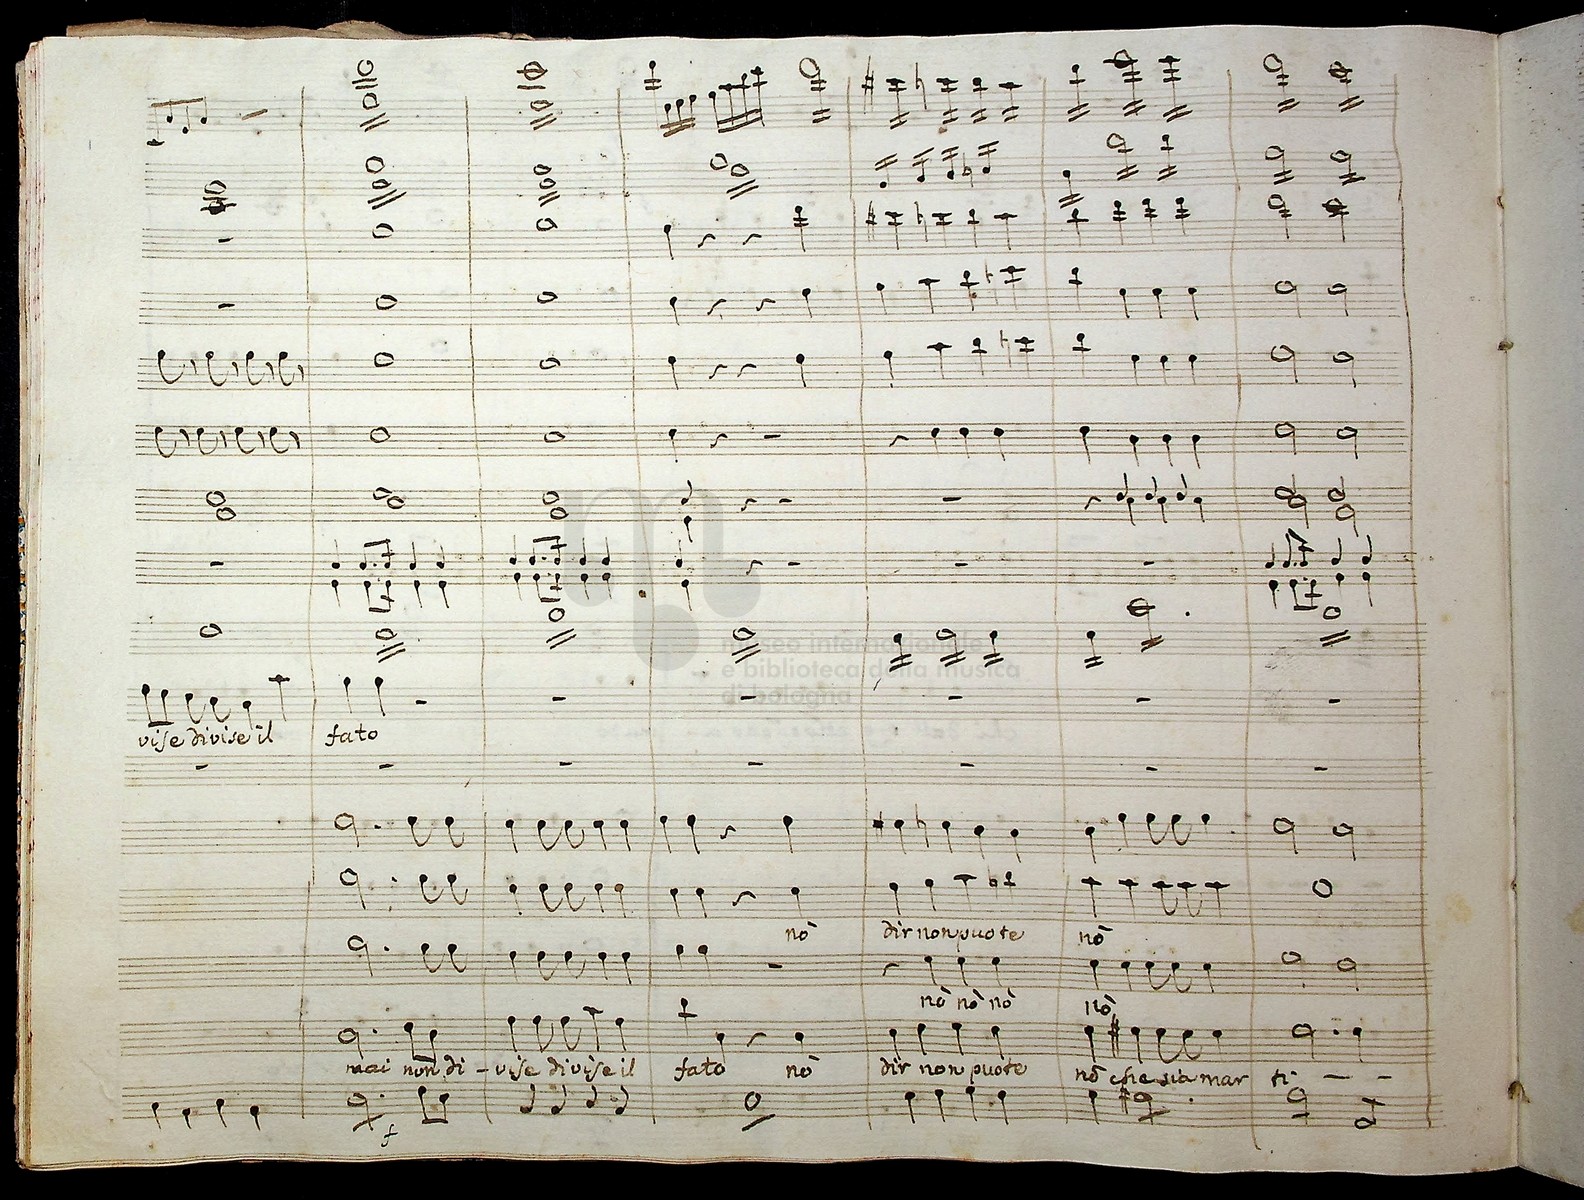 vise divise il fato
museo internazionale
e biblioteca della musica
di bologna
nò dir non puote nò
nò nò nò nò
mai non di - vise divise il fato nò dir non puote nò che sia mar ti - -
f